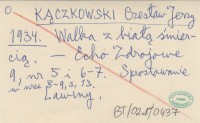 O
KĄCZKOWSKI Czesław Jerzy
1934. Walka z białą śmier-
cią. — Echo Zdrojowe
9, nr 5 i 6-7. Sprostowanie
w nrze 8-9, s. 13.
Lawiny.
BT/025/0437